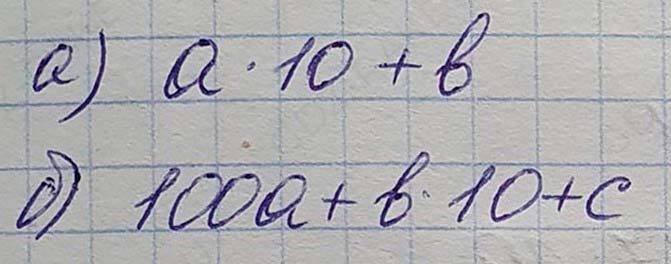 а) a · 10 + b
б) 100a + b · 10 + c